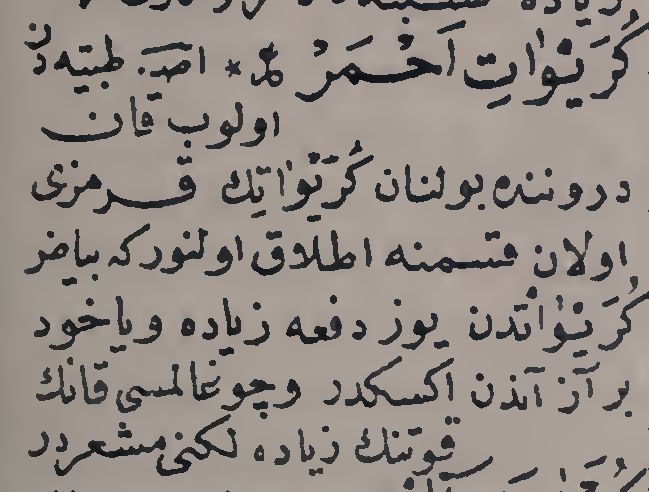 كُرَيْوَاتِ اَحْمَرْ * اصـ. طبيه دن
اولوب قان
دروننده بولنان كُرَيْوَاتِك قرمزى
اولان قسمنه اطلاق اولنوركه بياض
كُرَيْوَاتْدن يوز دفعه زياده وياخود
بر آز آندن اكسكدر وچوغالمسى قانك
قوتنك زياده لكنى مشعردر